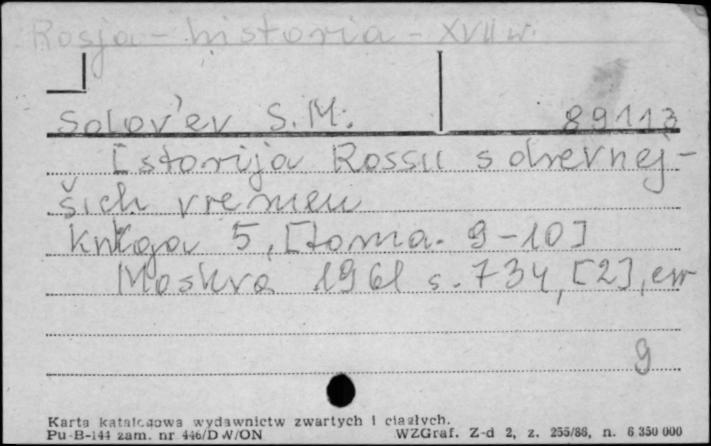 Rosja - historia - XVII w.
Solov'ev S.M. 89113
Istorija Rossii s drevnej-
šich vremen
Kniga 5, [toma. 9-10]
Moskva 1961 s. 734, [2], err
9
Karta katalogowa wydawnictw zwartych i ciągłych.
Pu-B-144 zam. nr 446/DW/ON WZGraf. Z-d 2, z. 255/86, n. 6 350 000